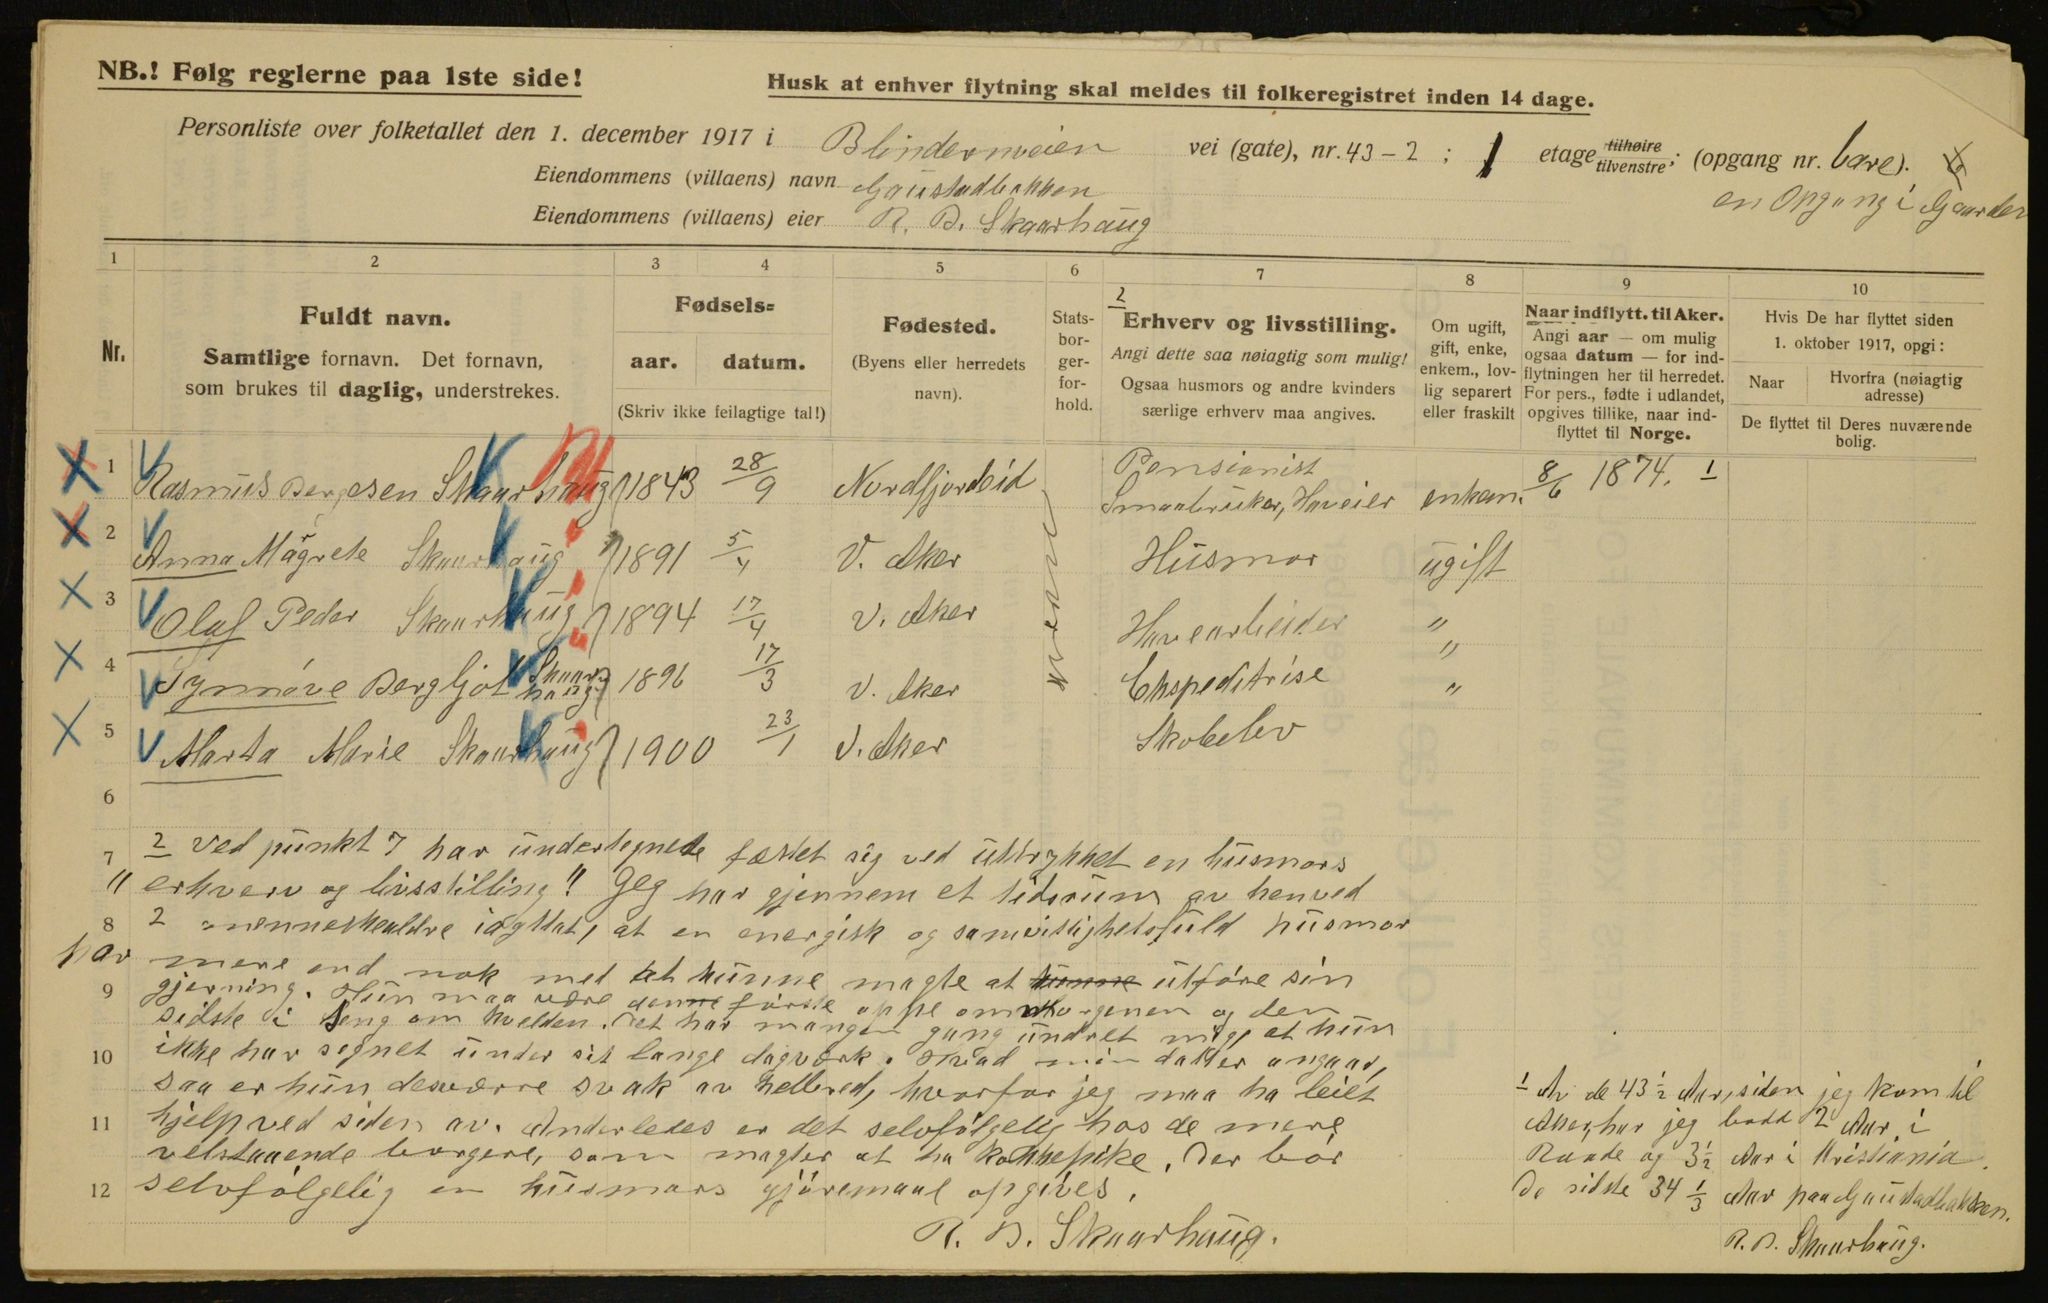 NB.! Følg reglerne paa 1ste side!
Husk at enhver flytning skal meldes til folkeregistret inden 14 dage.
Personliste over folketallet den 1. december 1917 i Blindernveien vei (gate), nr. 43-2 ; 1 etage tilhøire tilvenstre; (opgang nr. bare).
en Opgang i Gaarden
Eiendommens (villaens) navn Gaustadbakken
Eiendommens (villaens) eier R. B. Skaarhaug
1 2 3 4 5 6 7 8 9 10
Nr.
Fuldt navn.
Samtlige fornavn. Det fornavn,
som brukes til daglig, understrekes.
Fødsels=
aar. datum.
(Skriv ikke feilagtige tal!)
Fødested.
(Byens eller herredets
navn).
Stats-
bor-
ger-
for-
hold.
2
Erhverv og livsstilling.
Angi dette saa nøiagtig som mulig!
Ogsaa husmors og andre kvinders
særlige erhverv maa angives.
Om ugift,
gift, enke,
enkem., lov-
lig separert
eller fraskilt
Naar indflytt. til Aker.
Angi aar — om mulig
ogsaa datum — for ind-
flytningen her til herredet.
For pers., fødte i udlandet,
opgives tillike, naar ind-
flyttet til Norge.
Hvis De har flyttet siden
1. oktober 1917, opgi:
Naar Hvorfra (nøiagtig
adresse)
De flyttet til Deres nuværende
bolig.
1 Rasmus Bergesen Skaarhaug 1843 28/9 Nordfjordeid Pensionist Smaabruker, Haveier enkem. 8/6 1874. 1
2 Anna Magrete Skaarhaug 1891 5/4 V. Aker Husmor ugift
3 Olaf Peder Skaarhaug 1894 17/4 V. Aker Havearbeider "
4 Synnøve Bergljot Skaarhaug 1896 17/3 V. Aker Ekspeditrise "
5 Marta Marie Skaarhaug 1900 23/1 V. Aker Skoelev "
norske
6
7 2 Ved punkt 7 har undertegnede fæstet sig ved uttrykket en husmors
"erhverv og livsstilling" Jeg har gjennem et tidsrum av henved
8 2 menneskealdre iagttat, at en energisk og samvittighetsfuld husmor
har mere end nok med at kunne magte at kunne utføre sin
9 gjerning. Hun maa være den første oppe om morgenen og den
sidste i seng om kvelden. Det har mangen gang undret mig, at hun
10 ikke har segnet under sit lange dagverk. Hvad min datter angaar,
saa er hun desværre svak av helbred, hvorfor jeg maa ha leiet
11 hjelp ved siden av. Anderledes er det selvfølgelig hos de mere
velstaaende borgere, som magter at ha kokkepike. Der bør
12 selvfølgelig en husmors gjøremaal opgives.
R. B. Skaarhaug.
1 Av de 43 1/2 Aar, siden jeg kom til
Aker, har jeg bodd 2 Aar i
Raade og 3 1/2 Aar i Kristiania.
De sidste 34 1/3 Aar paa Gaustadbakken.
R. B. Skaarhaug.